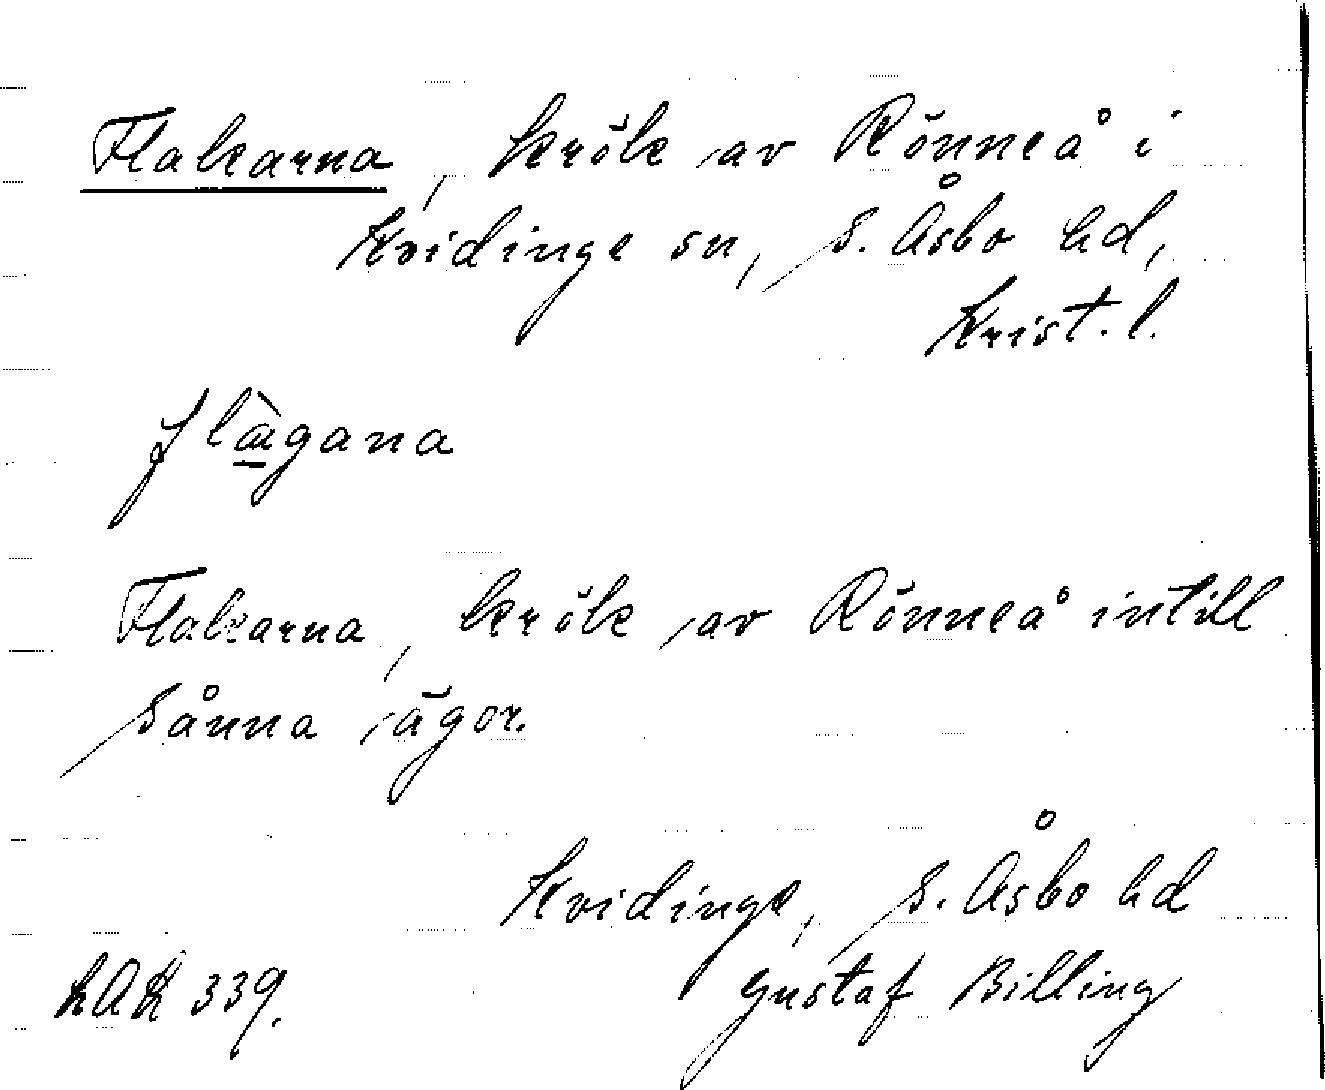 Flakarna, krök av Rönneå i
Kvidinge sn, S. Åsbo hd,
Krist. l.
flàgana
Flakarna, krök av Rönneå intill
Sånna ägor.
Kvidinge, S. Åsbo hd
LAK 339. Gustaf Billing